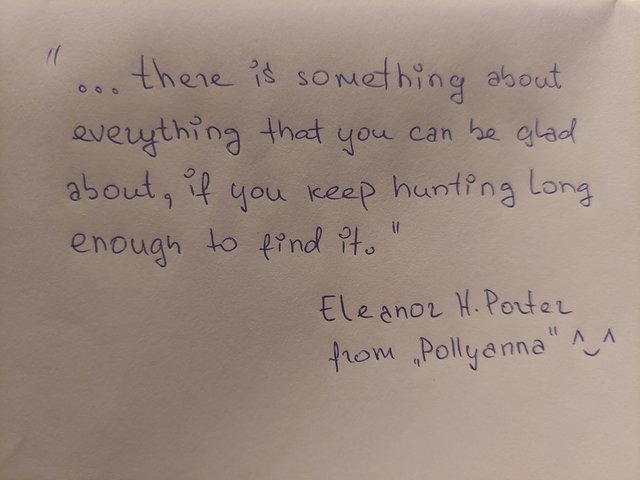 "... there is something about
everything that you can be glad
about, if you keep hunting long
enough to find it."
Eleanor H. Porter
from „Pollyanna" ^‿^